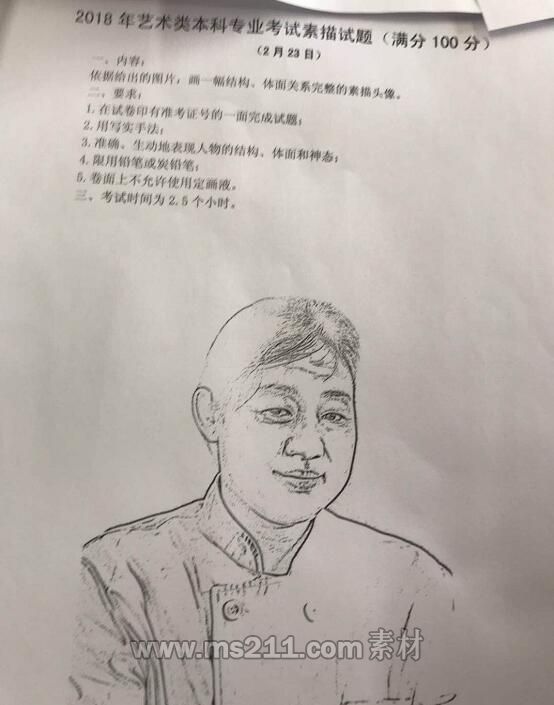 2018年艺术类本科专业考试素描试题（满分100分）
（2月23日）
一、内容：
依据给出的图片，画一幅结构、体面关系完整的素描头像。
二、要求：
1.在试卷印有准考证号的一面完成试题；
2.用写实手法；
3.准确、生动地表现人物的结构、体面和神态；
4.限用铅笔或炭铅笔；
5.卷面上不允许使用定画液。
三、考试时间为2.5个小时。
www.ms211.com 素材